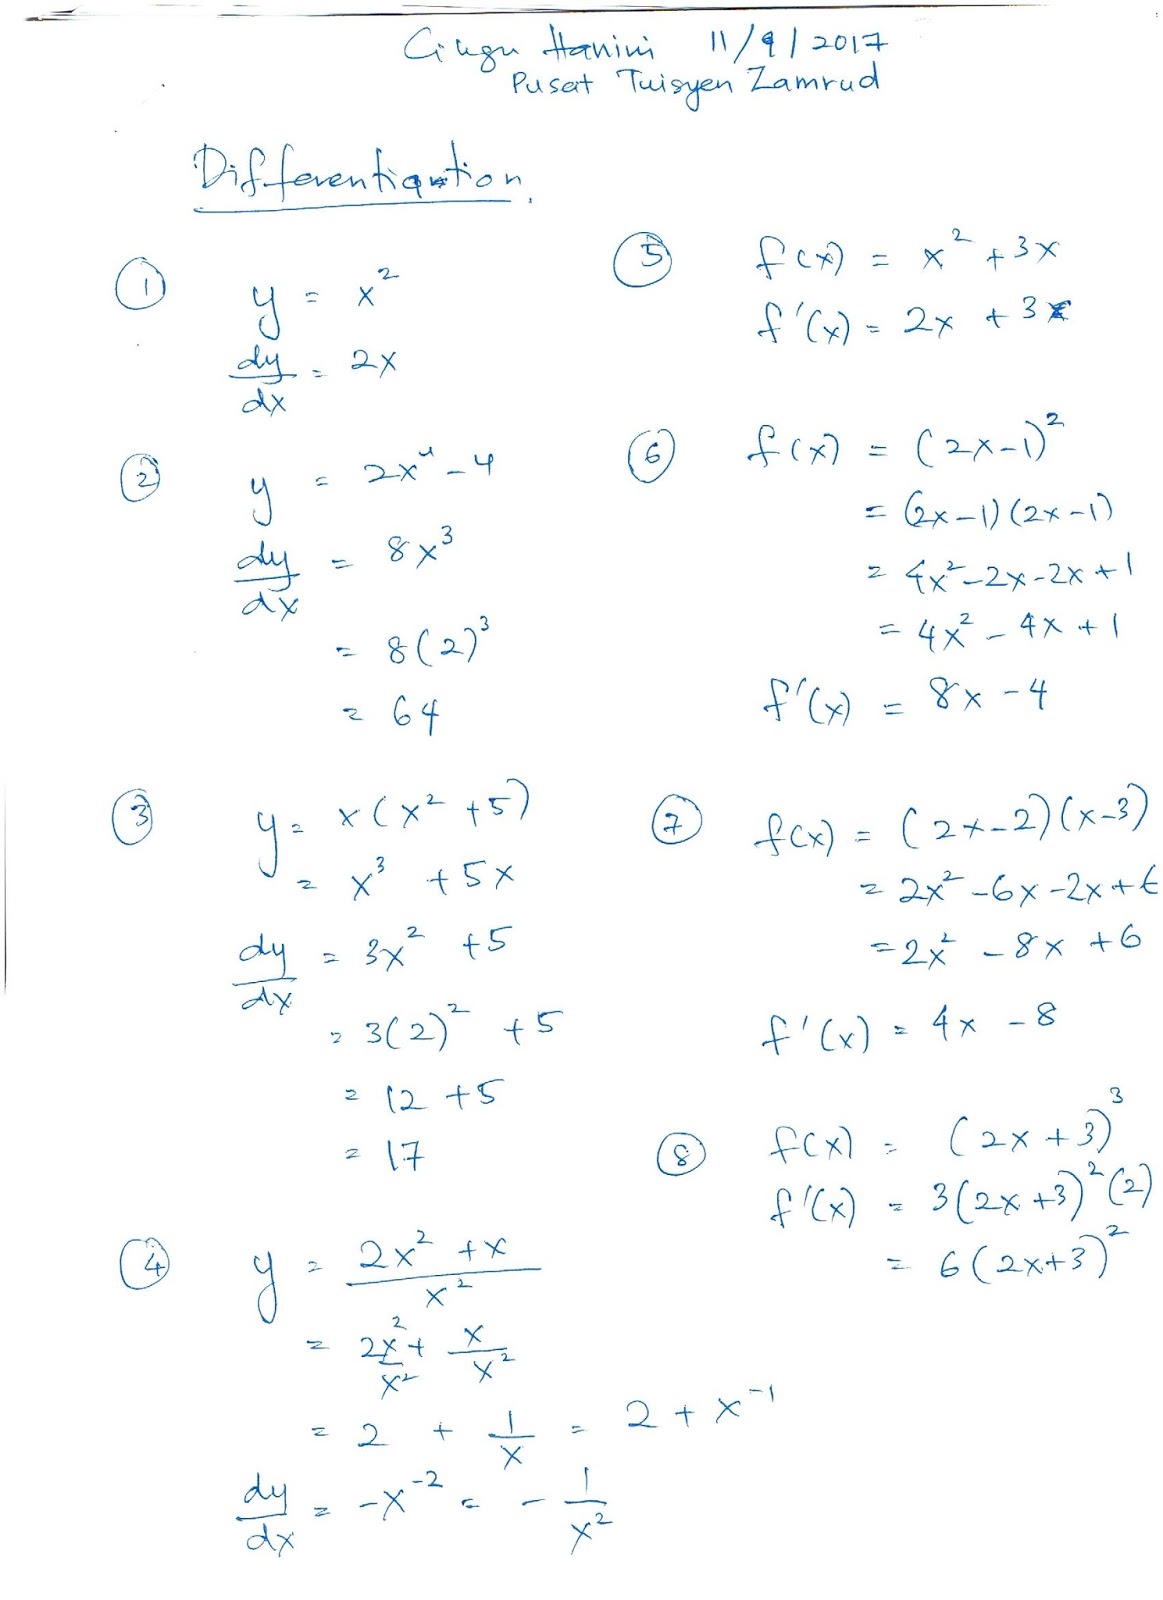 Cikgu Hanini 11/9/2017
Pusat Tuisyen Zamrud
Differentiation.
①
y = x²
dy/dx = 2x
②
y = 2x⁴ - 4
dy/dx = 8x³
= 8(2)³
= 64
③
y = x(x² + 5)
= x³ + 5x
dy/dx = 3x² + 5
= 3(2)² + 5
= 12 + 5
= 17
④
y = (2x² + x)/x²
= 2x²/x² + x/x²
= 2 + 1/x = 2 + x⁻¹
dy/dx = -x⁻² = - 1/x²
⑤
f(x) = x² + 3x
f'(x) = 2x + 3
⑥
f(x) = (2x-1)²
= (2x-1)(2x-1)
= 4x² - 2x - 2x + 1
= 4x² - 4x + 1
f'(x) = 8x - 4
⑦
f(x) = (2x-2)(x-3)
= 2x² - 6x - 2x + 6
= 2x² - 8x + 6
f'(x) = 4x - 8
⑧
f(x) = (2x+3)³
f'(x) = 3(2x+3)²(2)
= 6(2x+3)²